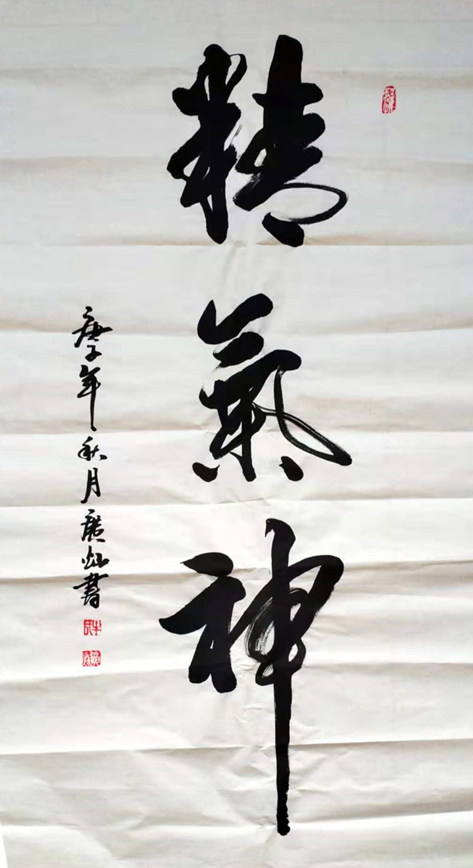 精氣神
庚子年秋月廣灿書